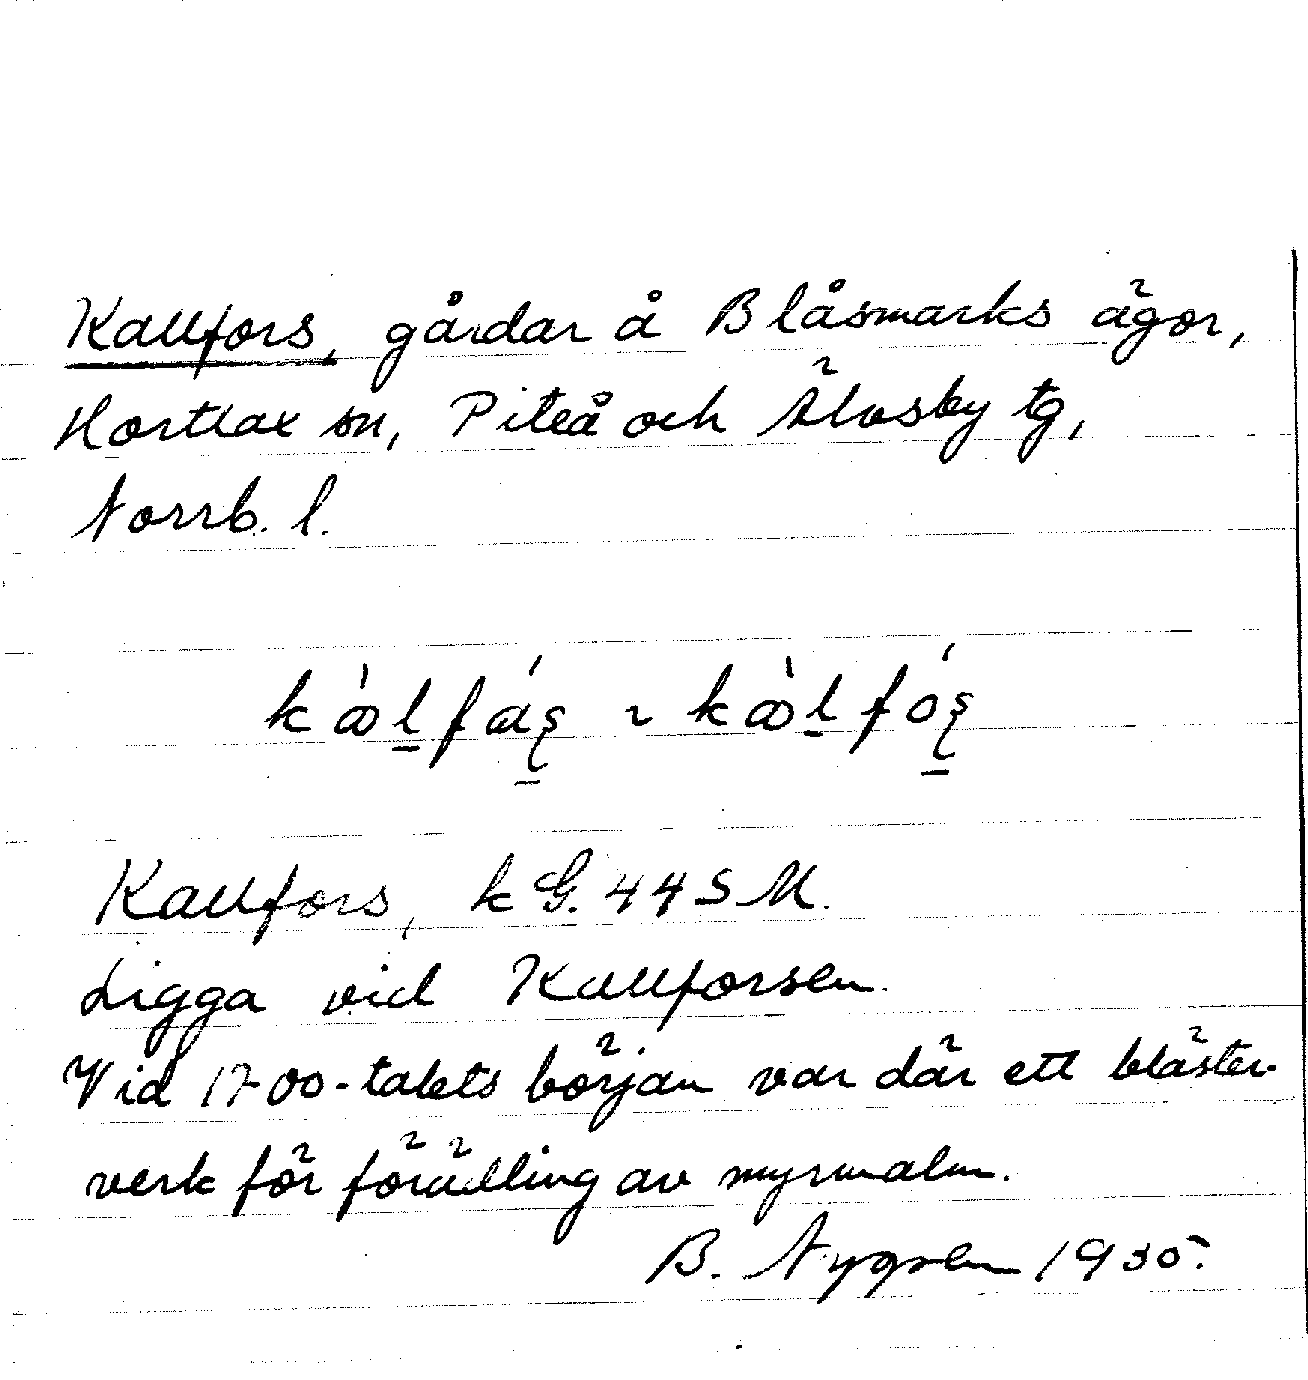 Kallfors, gårdar å Blåsmarks ägor,
Hortlax sn, Piteå och Älvsby tg,
Norrb. l.
Kallfors, kG. 44 S M.
Ligga vid Kallforsen.
Vid 1700-talets början var där ett bläster-
verk för förädling av myrmalm.
B. Nygren 1935.